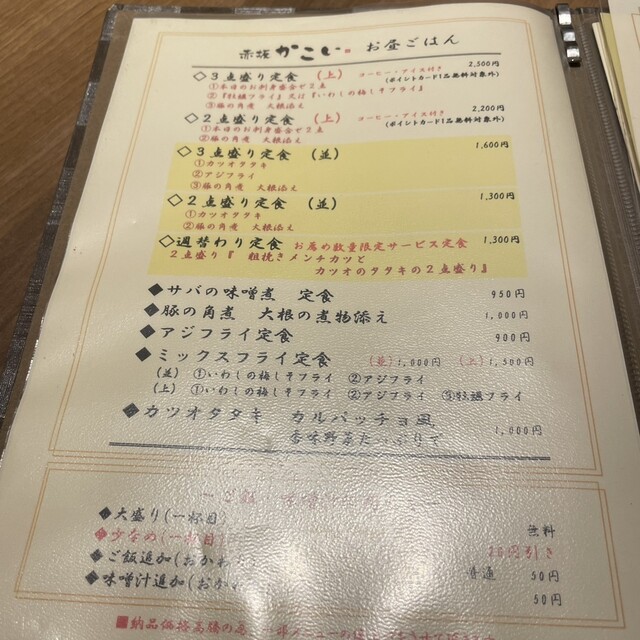 赤坂 かこい お昼ごはん
◇３点盛り定食 （上） コーヒー・アイス付き 2,500円
(ポイントカード1品無料対象外)
①本日のお刺身盛合せ２点
②『牡蠣フライ』又は『いわしの梅しそフライ』
③豚の角煮 大根添え
◇２点盛り定食 （上） コーヒー・アイス付き 2,200円
(ポイントカード1品無料対象外)
①本日のお刺身盛合せ２点
②豚の角煮 大根添え
◇３点盛り定食 （並） 1,600円
①カツオタタキ
②アジフライ
③豚の角煮 大根添え
◇２点盛り定食 （並） 1,300円
①カツオタタキ
②豚の角煮 大根添え
◇週替わり定食 お薦め数量限定サービス定食 1,300円
２点盛り『 粗挽きメンチカツと
カツオのタタキの２点盛り』
◆サバの味噌煮 定食 950円
◆豚の角煮 大根の煮物添え 1,000円
◆アジフライ定食 900円
◆ミックスフライ定食 (並)1,000円 (上)1,500円
(並) ①いわしの梅しそフライ ②アジフライ
(上) ①いわしの梅しそフライ ②アジフライ ③牡蠣フライ
◆カツオタタキ カルパッチョ風
香味野菜たっぷりで 1,000円
◆大盛り(一杯目) 無料
◆少なめ(一杯目) 20円引き
◆ご飯追加(おかわ 普通 50円
◆味噌汁追加(おか 50円
■納品価格高騰の為